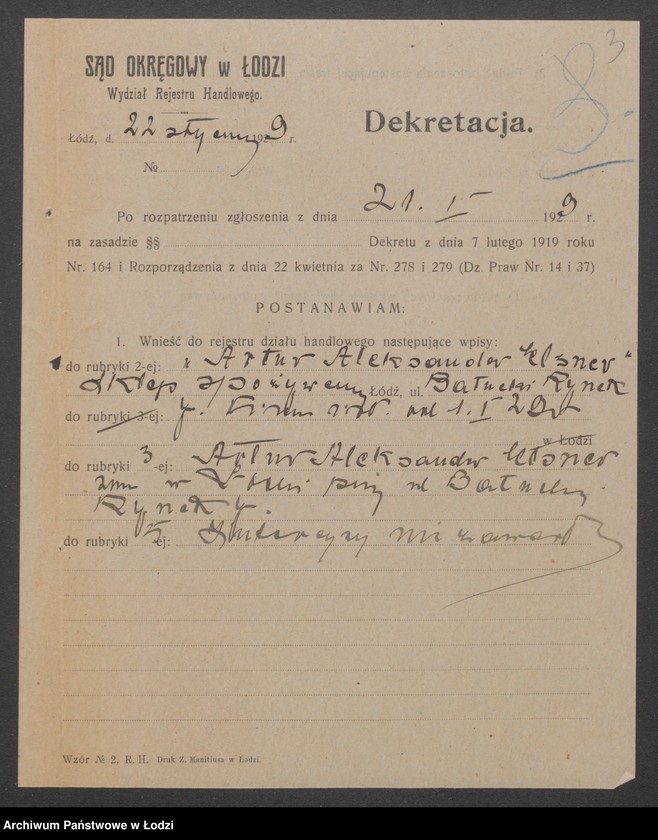 3
8
SĄD OKRĘGOWY w ŁODZI
Wydział Rejestru Handlowego.
Dekretacja.
Łódź, d. 22 stycznia 1929 r.
№
Po rozpatrzeniu zgłoszenia z dnia 21. I 1929 r.
na zasadzie §§ Dekretu z dnia 7 lutego 1919 roku
Nr. 164 i Rozporządzenia z dnia 22 kwietnia za Nr. 278 i 279 (Dz. Praw Nr. 14 i 37)
POSTANAWIAM:
1. Wnieść do rejestru działu handlowego następujące wpisy:
do rubryki 2-ej: „Artur Aleksander Elsner"
Sklep spożywczy Łódź, ul. Bałucki Rynek
do rubryki 3-ej: 7. Firma istn. od 1. I 29 r
w Łodzi
do rubryki 3-ej: Artur Aleksander Elsner
zam w Łodzi przy ul Bałucki
Rynek 7.
do rubryki -ej: Intercyzy nie zawarł
Wzór № 2. R. H. Druk X. Manitiusa w Łodzi.
Archiwum Państwowe w Łodzi